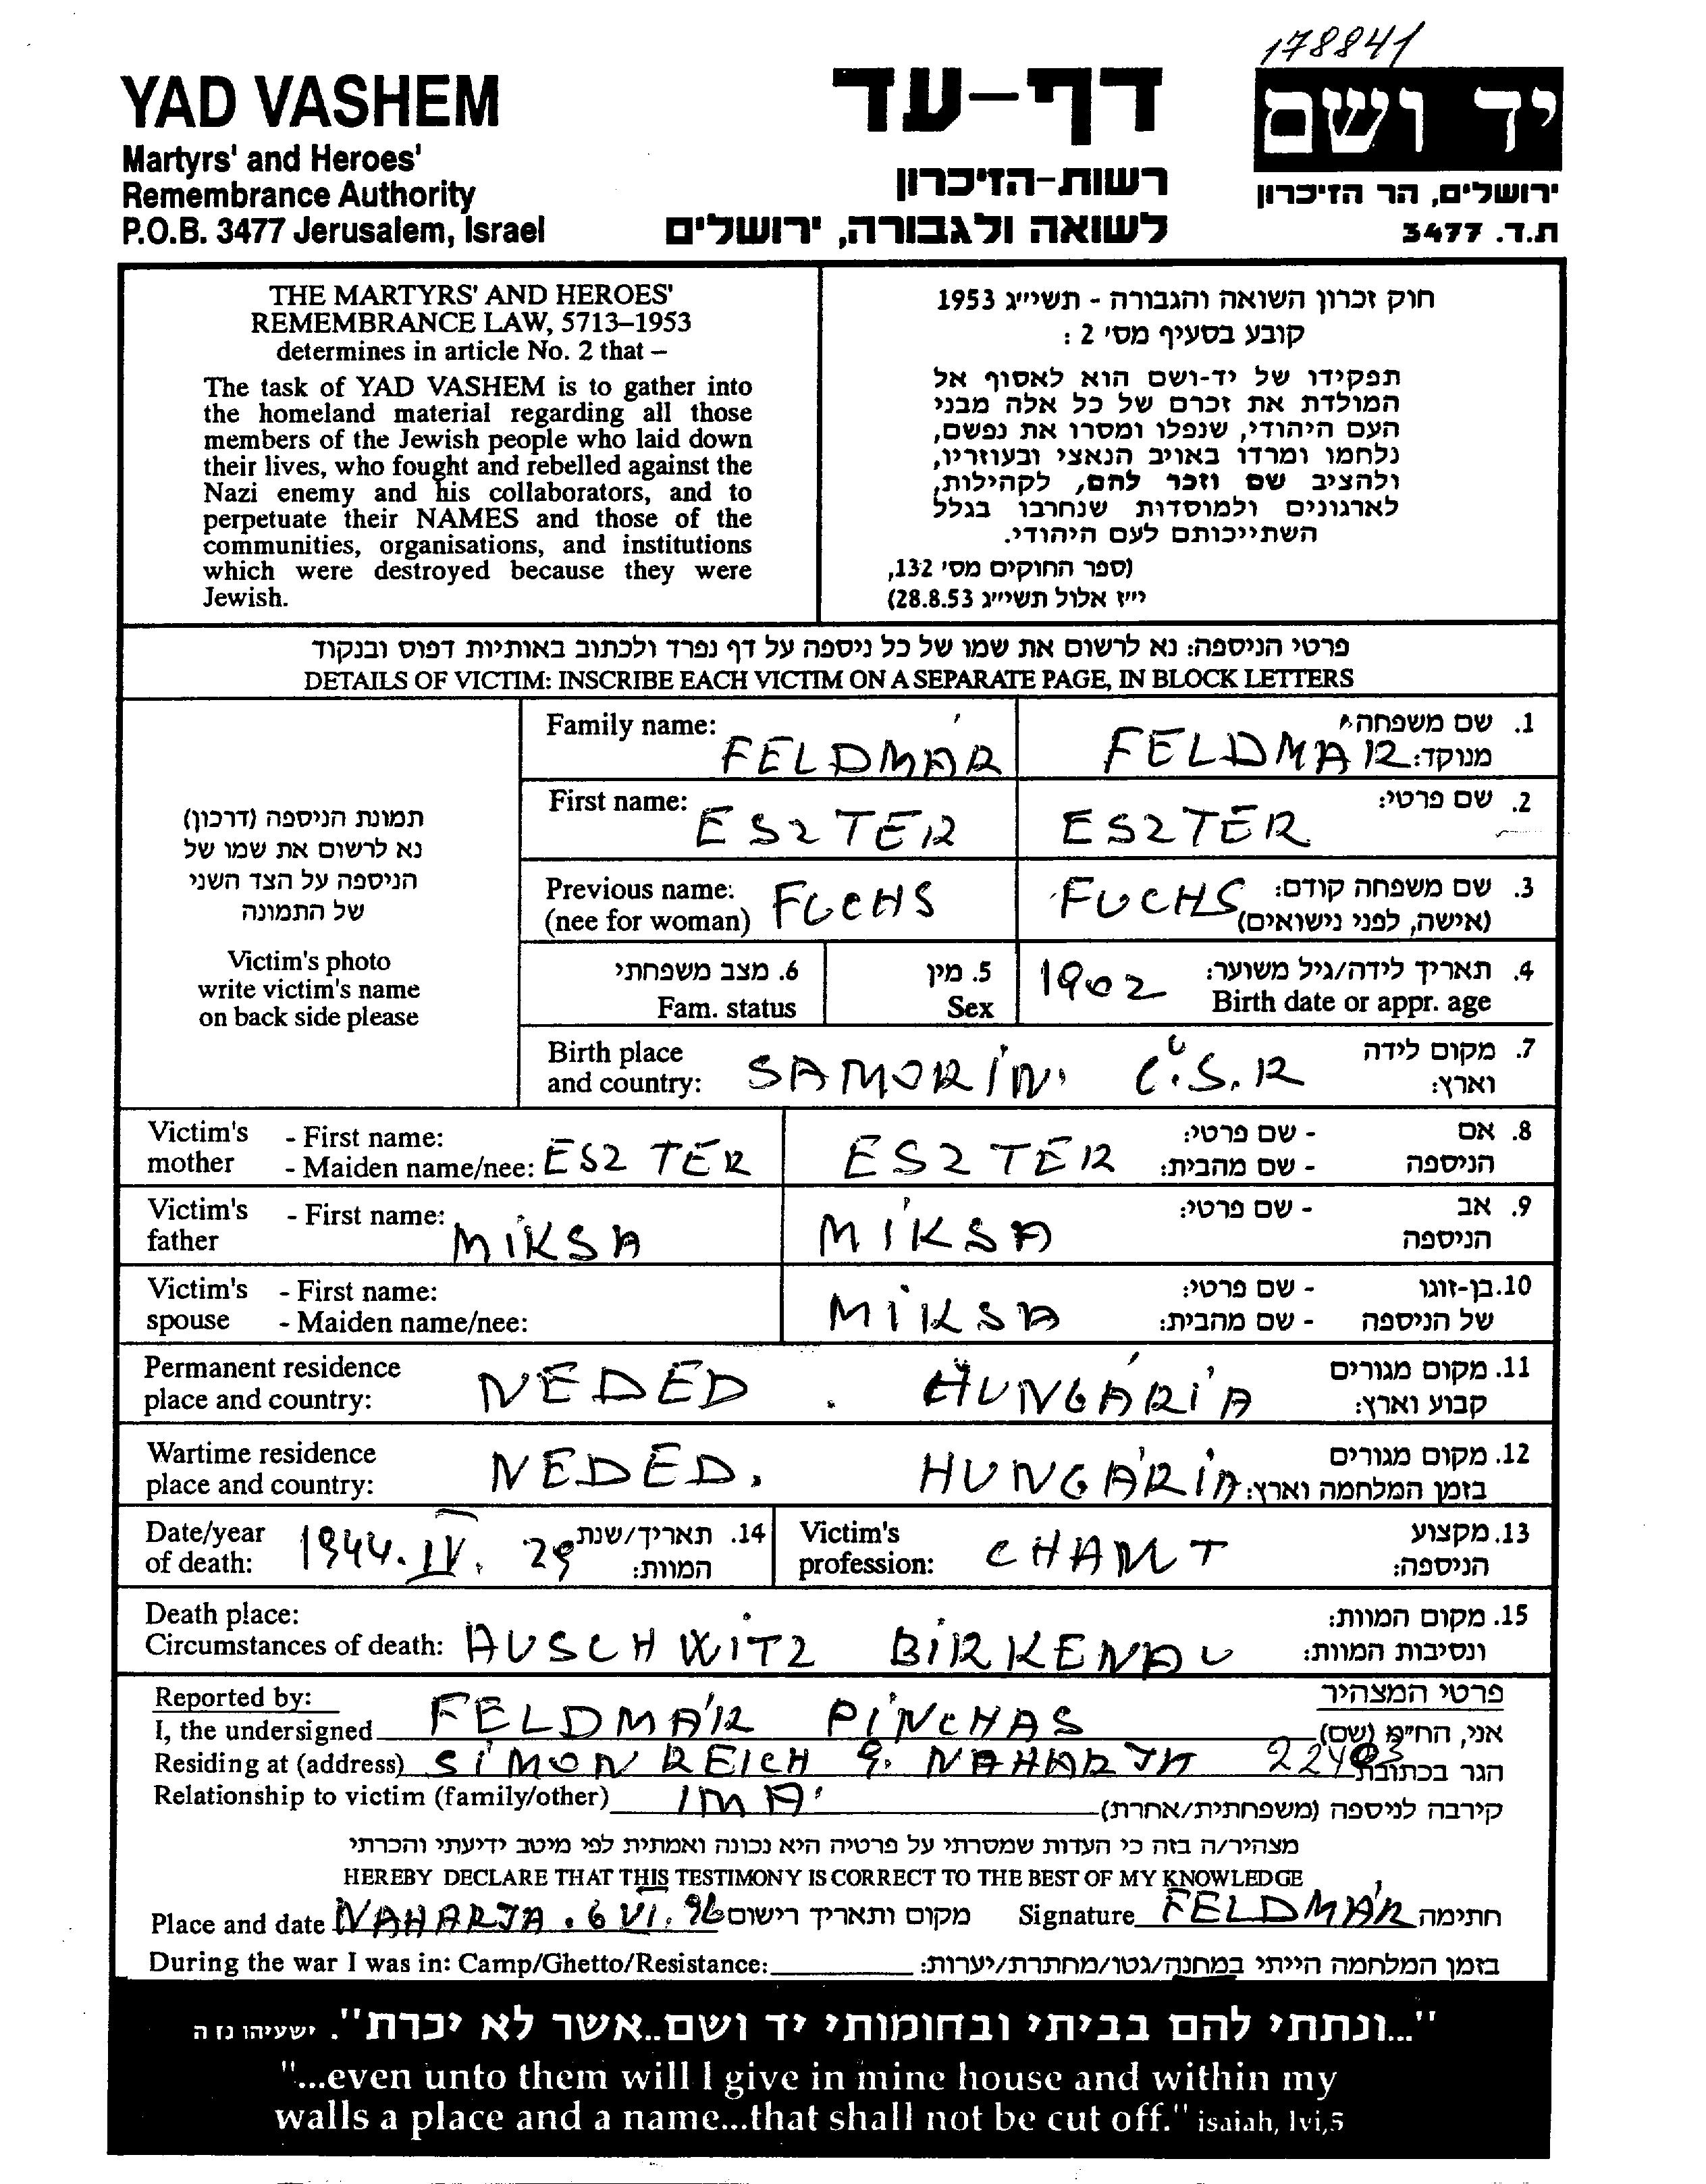 178841
YAD VASHEM
Martyrs' and Heroes'
Remembrance Authority
P.O.B. 3477 Jerusalem, Israel
דף-עד
רשות-הזיכרון
לשואה ולגבורה, ירושלים
יד ושם
ירושלים, הר הזיכרון
ת.ד. 3477
THE MARTYRS' AND HEROES'
REMEMBRANCE LAW, 5713–1953
determines in article No. 2 that –
The task of YAD VASHEM is to gather into
the homeland material regarding all those
members of the Jewish people who laid down
their lives, who fought and rebelled against the
Nazi enemy and his collaborators, and to
perpetuate their NAMES and those of the
communities, organisations, and institutions
which were destroyed because they were
Jewish.
חוק זכרון השואה והגבורה - תשי״ג 1953
קובע בסעיף מס׳ 2 :
תפקידו של יד-ושם הוא לאסוף אל
המולדת את זכרם של כל אלה מבני
העם היהודי, שנפלו ומסרו את נפשם,
נלחמו ומרדו באויב הנאצי ובעוזריו,
ולהציב שם וזכר להם, לקהילות,
לארגונים ולמוסדות שנחרבו בגלל
השתייכותם לעם היהודי.
(ספר החוקים מס׳ 132,
י״ז אלול תשי״ג 28.8.53)
פרטי הניספה: נא לרשום את שמו של כל ניספה על דף נפרד ולכתוב באותיות דפוס ובנקוד
DETAILS OF VICTIM: INSCRIBE EACH VICTIM ON A SEPARATE PAGE, IN BLOCK LETTERS
תמונת הניספה (דרכון)
נא לרשום את שמו של
הניספה על הצד השני
של התמונה
Victim's photo
write victim's name
on back side please
Family name: FELDMÁR FELDMAR 1. שם משפחה
מנוקד:
First name: ESZTER ESZTER 2. שם פרטי:
Previous name: FUCHS FUCHS 3. שם משפחה קודם:
(nee for woman) (אישה, לפני נישואים)
6. מצב משפחתי 5. מין 1902 4. תאריך לידה/גיל משוער:
Fam. status Sex Birth date or appr. age
Birth place SAMORIN. Č.S.R 7. מקום לידה
and country: וארץ:
Victim's - First name: - שם פרטי: 8. אם
mother - Maiden name/nee: ESZTER ESZTER - שם מהבית: הניספה
Victim's - First name: MIKSA MIKSA - שם פרטי: 9. אב
father הניספה
Victim's - First name: - שם פרטי: 10. בן-זוגו
spouse - Maiden name/nee: MIKSA - שם מהבית: של הניספה
Permanent residence NEDED. HUNGÁRIA 11. מקום מגורים
place and country: קבוע וארץ:
Wartime residence NEDED. HUNGÁRIA 12. מקום מגורים
place and country: בזמן המלחמה וארץ:
Date/year 1944. IV. 29 14. תאריך/שנת Victim's 13. מקצוע
of death: המוות: profession: הניספה:
Death place: 15. מקום המוות:
Circumstances of death: AUSCHWITZ BIRKENAU ונסיבות המוות:
Reported by: פרטי המצהיר
I, the undersigned FELDMÁR PINCHAS אני, הח״מ (שם)
Residing at (address) SIMON REICH 9. NAHARJA 22403 הגר בכתובת
Relationship to victim (family/other) IMA קירבה לניספה (משפחתית/אחרת)
מצהיר/ה בזה כי העדות שמסרתי על פרטיה היא נכונה ואמתית לפי מיטב ידיעתי והכרתי
HEREBY DECLARE THAT THIS TESTIMONY IS CORRECT TO THE BEST OF MY KNOWLEDGE
Place and date NAHARJA. 6 VI. 96 מקום ותאריך רישום Signature FELDMÁR חתימה
During the war I was in: Camp/Ghetto/Resistance: בזמן המלחמה הייתי במחנה/גטו/מחתרת/יערות:
"...ונתתי להם בביתי ובחומותי יד ושם..אשר לא יכרת". ישעיהו נז ה
"...even unto them will I give in mine house and within my
walls a place and a name...that shall not be cut off." isaiah, lvi,5